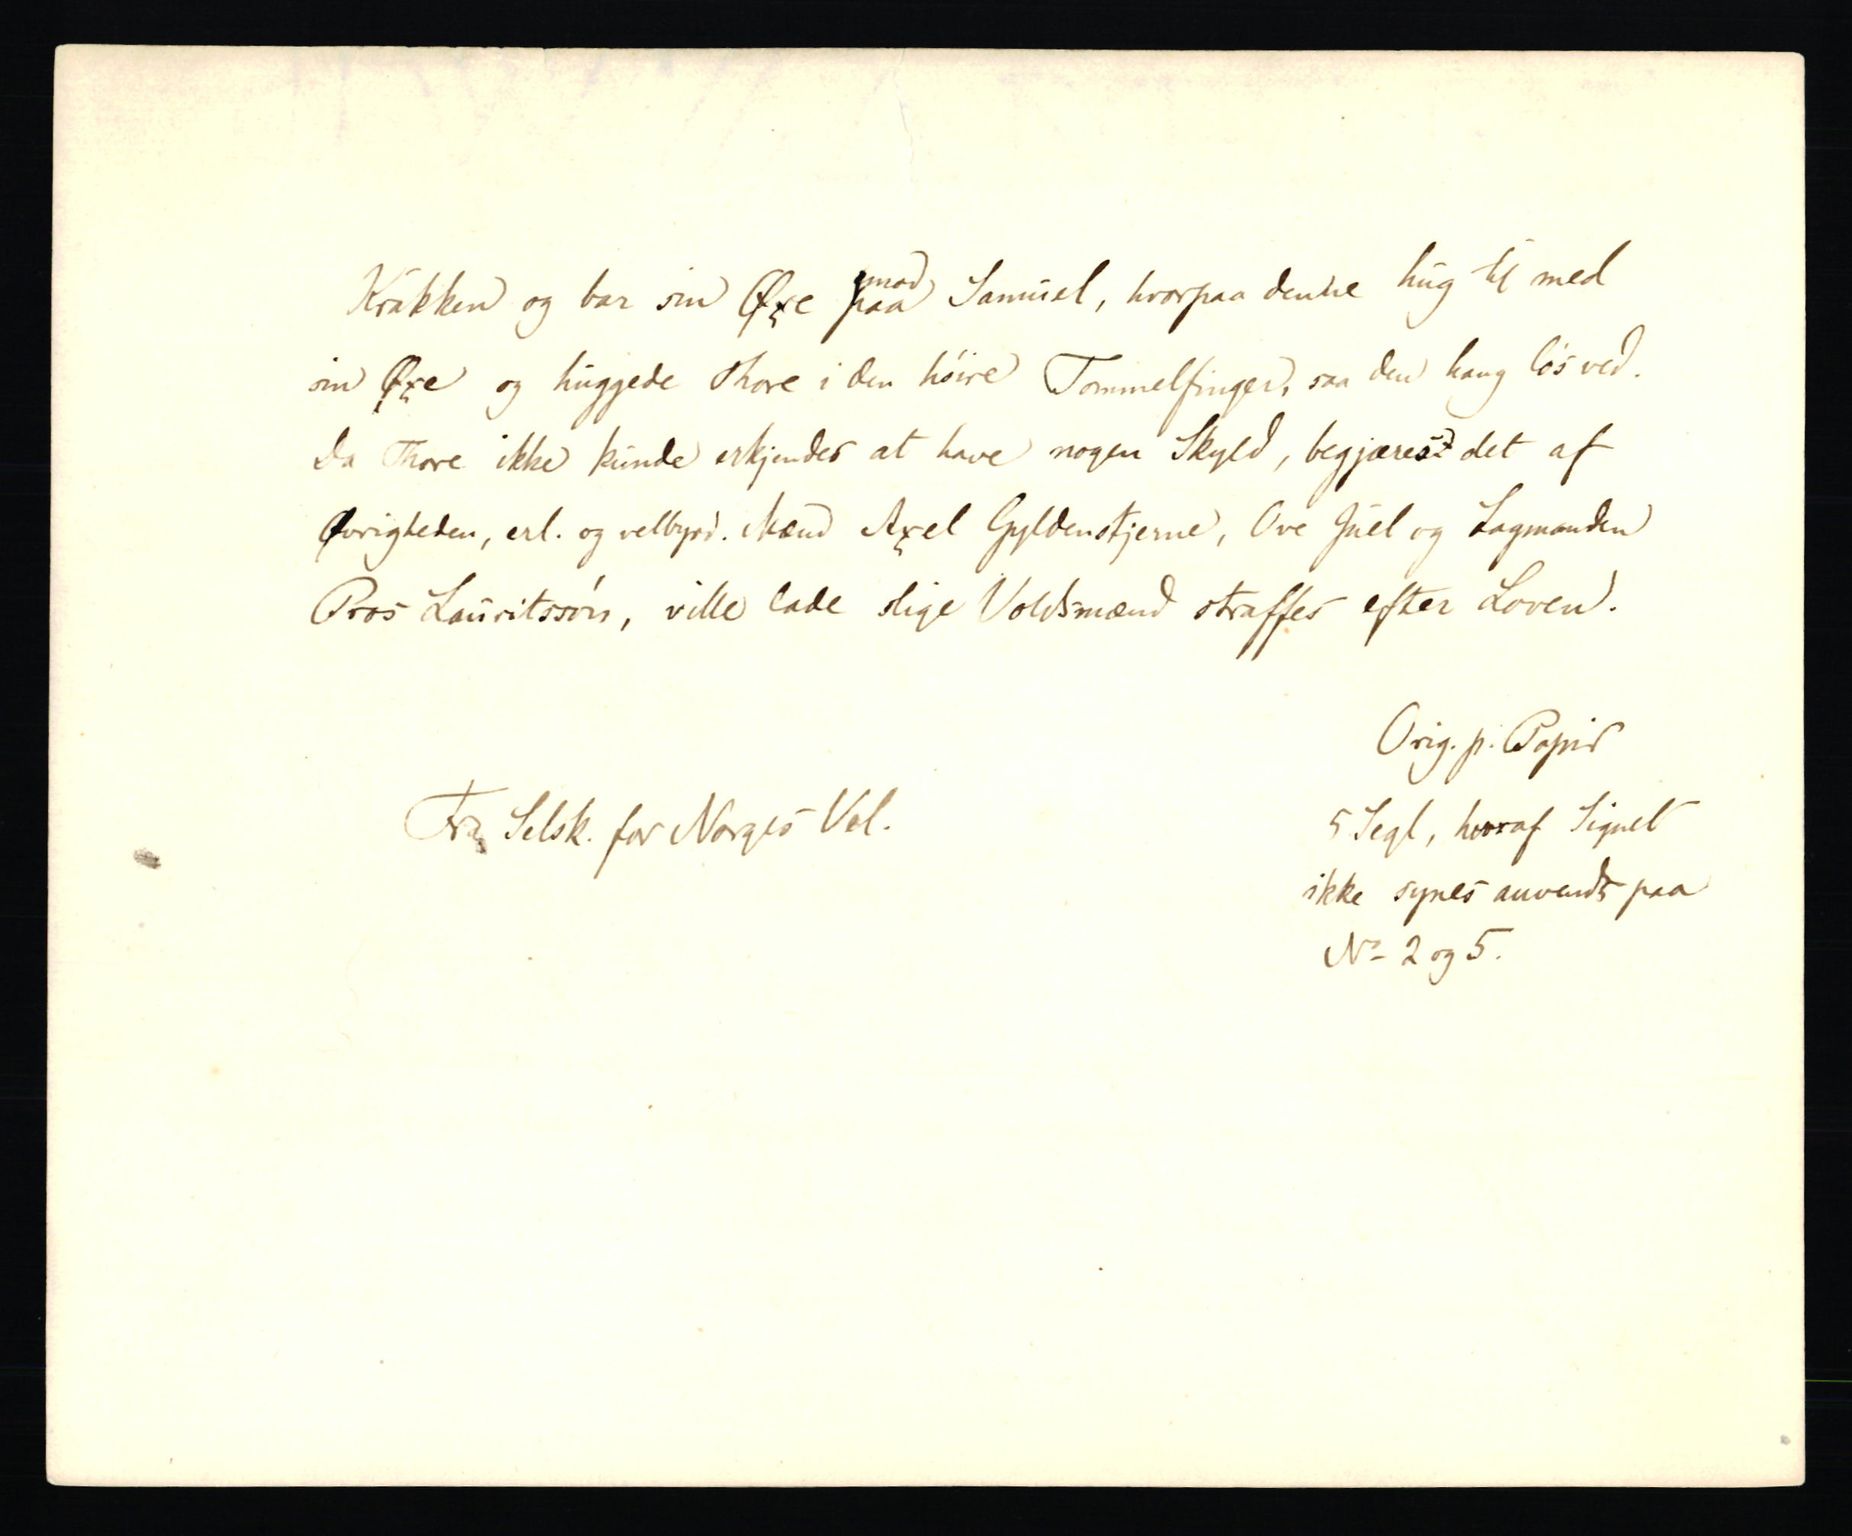 Krakken og bar sin Øxe mod paa Samuel, hvorpaa denne hug til med
sin Øxe og huggede Thore i den høire Tommelfinger, saa den hang løs ved.
Da Thore ikke kunde erkjendes at have nogen Skyld, begjæres det af
Øvrigheden, erl. og velbyrd. Mænd Axel Gyldenstjerne, Ove Juel og Lagmanden
Pros Lauritssøn, ville lade slige Voldsmænd straffes efter Loven.
Orig. p. Papir
Fra Selsk. for Norges Vel.
5 Segl, hvoraf Signet
ikke synes anvendt paa
No 2 og 5.